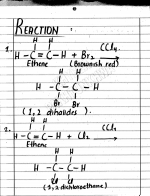 REACTION :
H H
1. H - C = C - H + Br₂ CCl₄ →
Ethene (Brownish red)
H H
H - C - C - H
Br Br
(1,2 dihalides).
H H
2. H - C = C - H + Cl₂ CCl₄ →
Ethene
H H
H - C - C - H
Cl Cl
(1,2 dichloroethane)